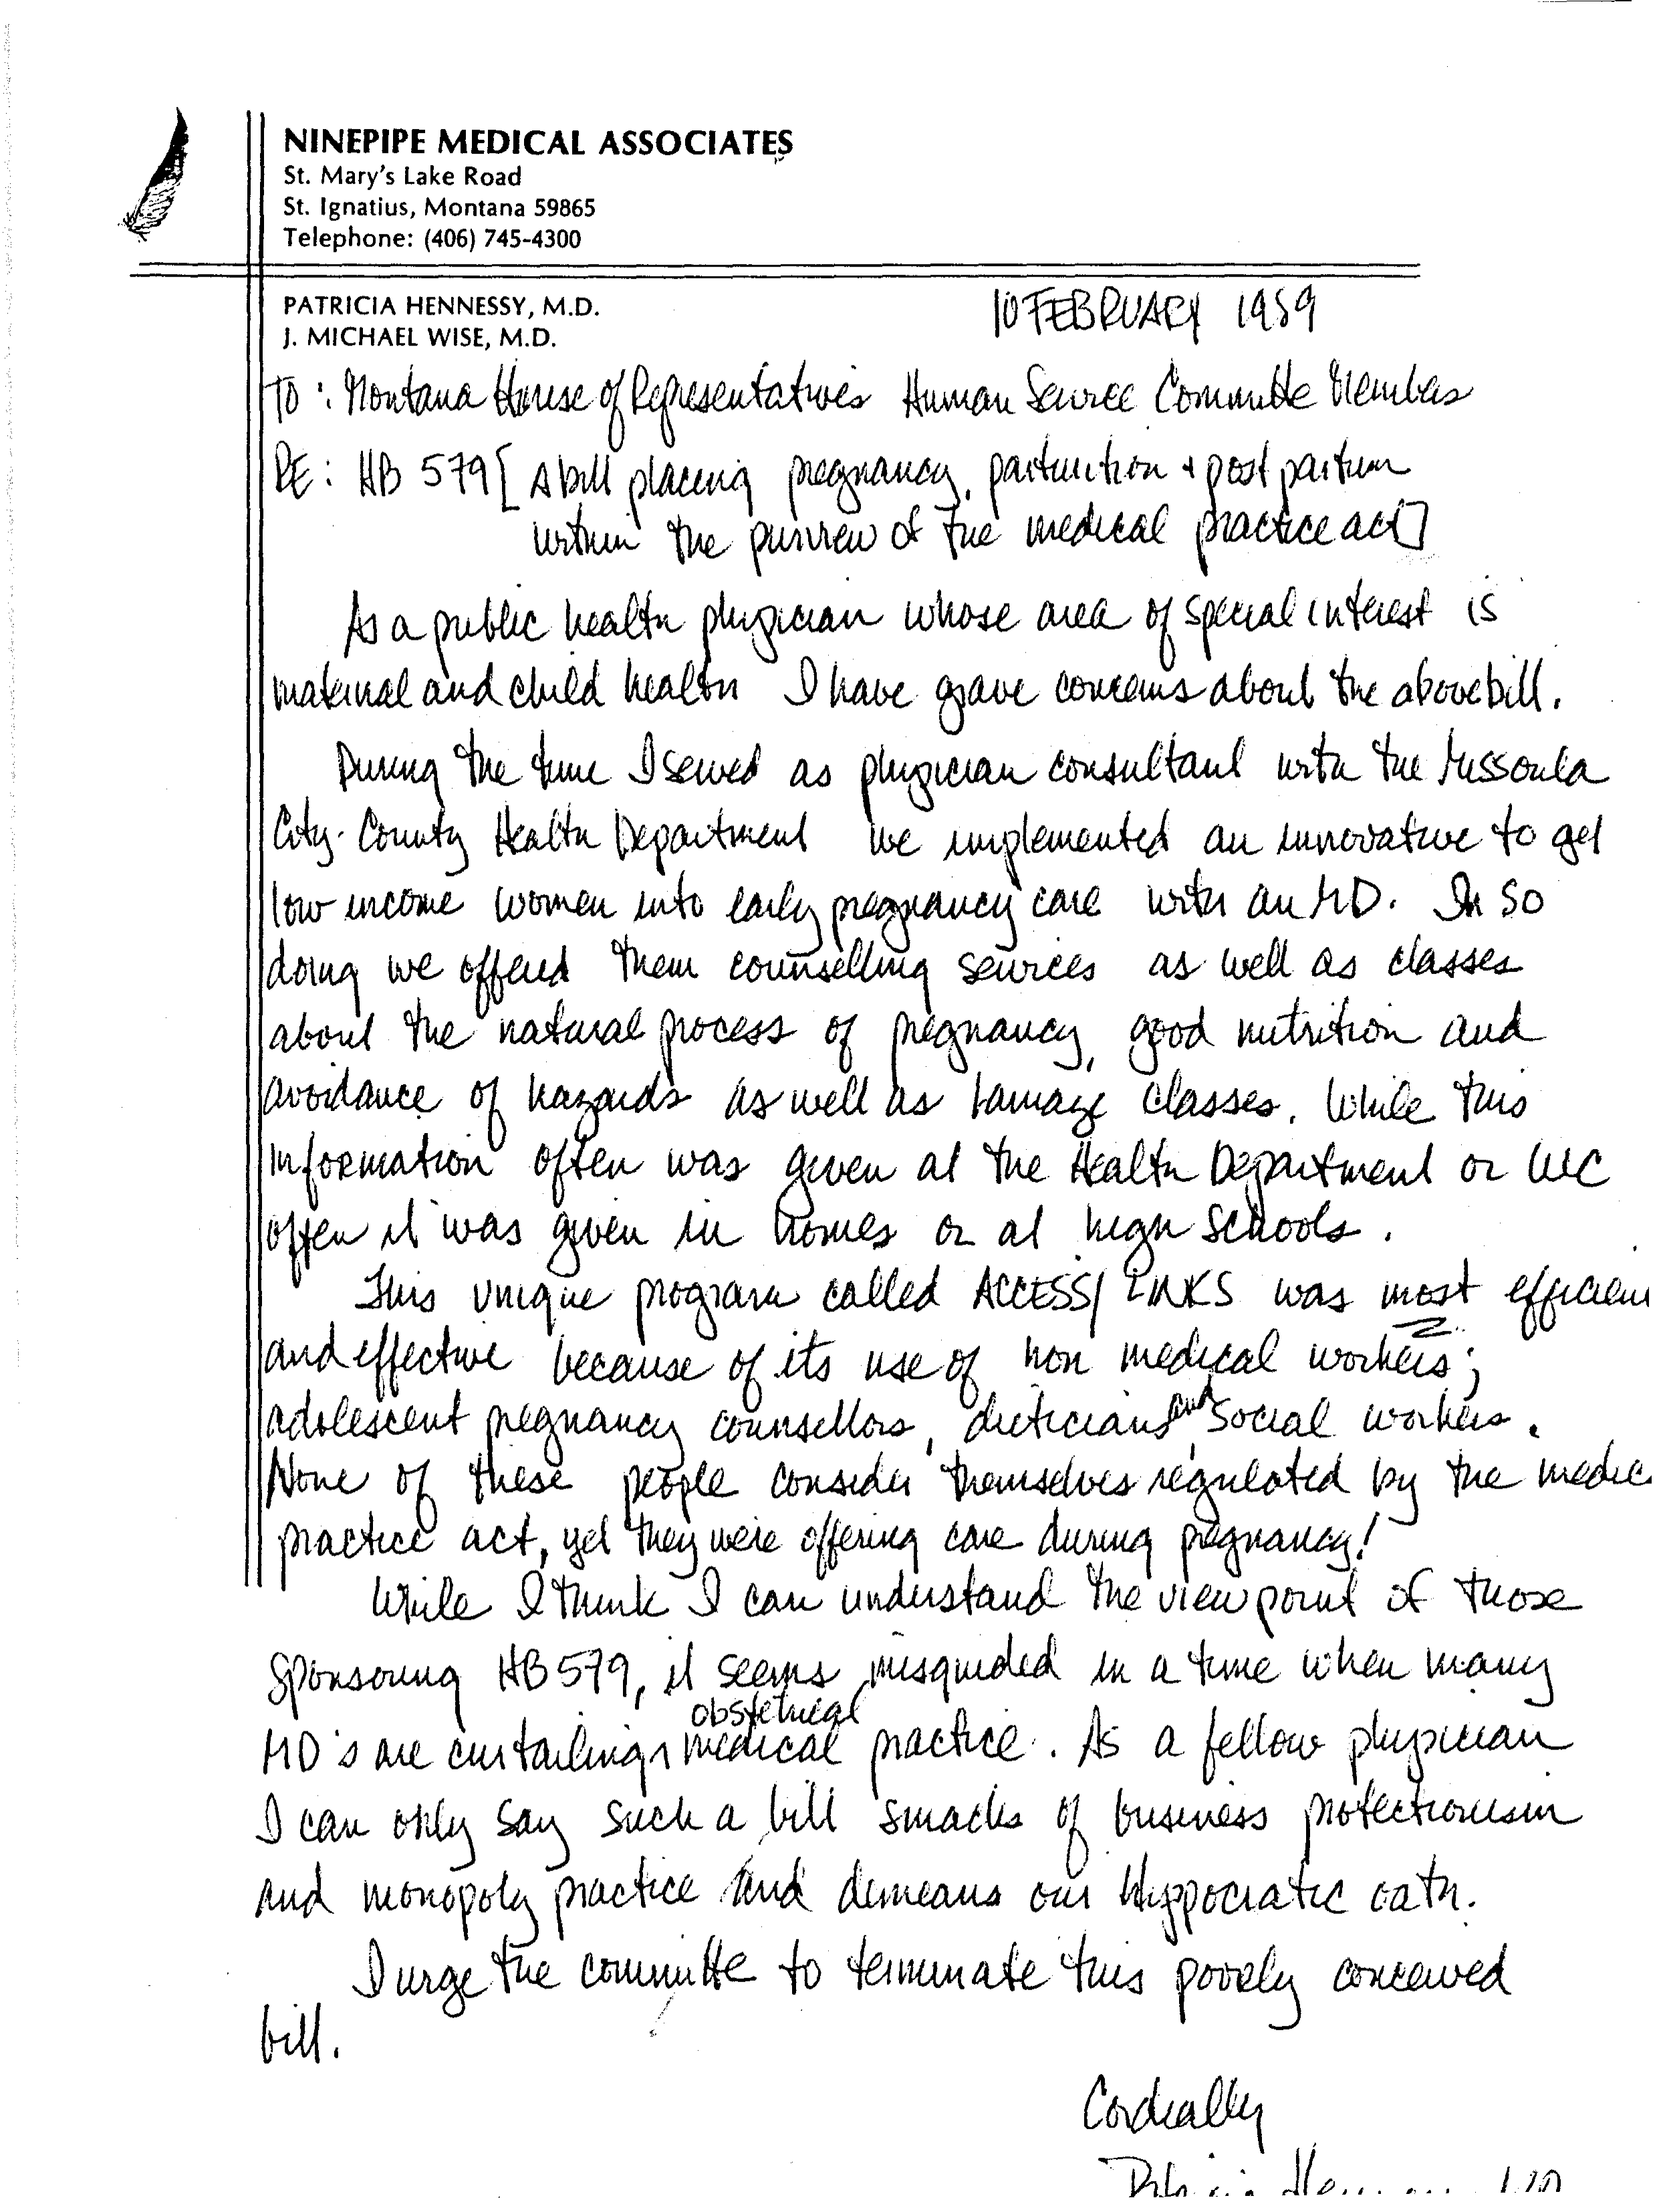 NINEPIPE MEDICAL ASSOCIATES
St. Mary's Lake Road
St. Ignatius, Montana 59865
Telephone: (406) 745-4300
PATRICIA HENNESSY, M.D.
J. MICHAEL WISE, M.D.
10 FEBRUARY 1989
TO: Montana House of Representatives Human Service Committe Members
RE: HB 579 [A bill placing pregnancy, parturition + post partum
within the purview of the medical practice act]
As a public health physician whose area of special interest is
maternal and child health I have grave concerns about the above bill.
During the time I served as physician consultant with the Missoula
City-County Health Department we implemented an innovative to get
low income women into early pregnancy care with an MD. In so
doing we offered them counselling services as well as classes
about the natural process of pregnancy, good nutrition and
avoidance of hazards as well as Lamaze classes. While this
information often was given at the Health Department or WIC
often it was given in homes or at high schools.
This unique program called ACCESS/LINKS was most efficien
and effective because of its use of non medical workers;
adolescent pregnancy counsellors, dieticians and social workers.
None of these people consider themselves regulated by the medic
practice act, yet they were offering care during pregnancy!
While I think I can understand the view point of those
sponsoring HB 579, it seems misguided in a time when many
MD's are curtailing obstetrical medical practice. As a fellow physician
I can only say such a bill smacks of business protectionism
and monopoly practice and demeans our Hippocratic oath.
I urge the committe to terminate this poorly conceived
bill.
Cordially
Patricia Hennessy MD